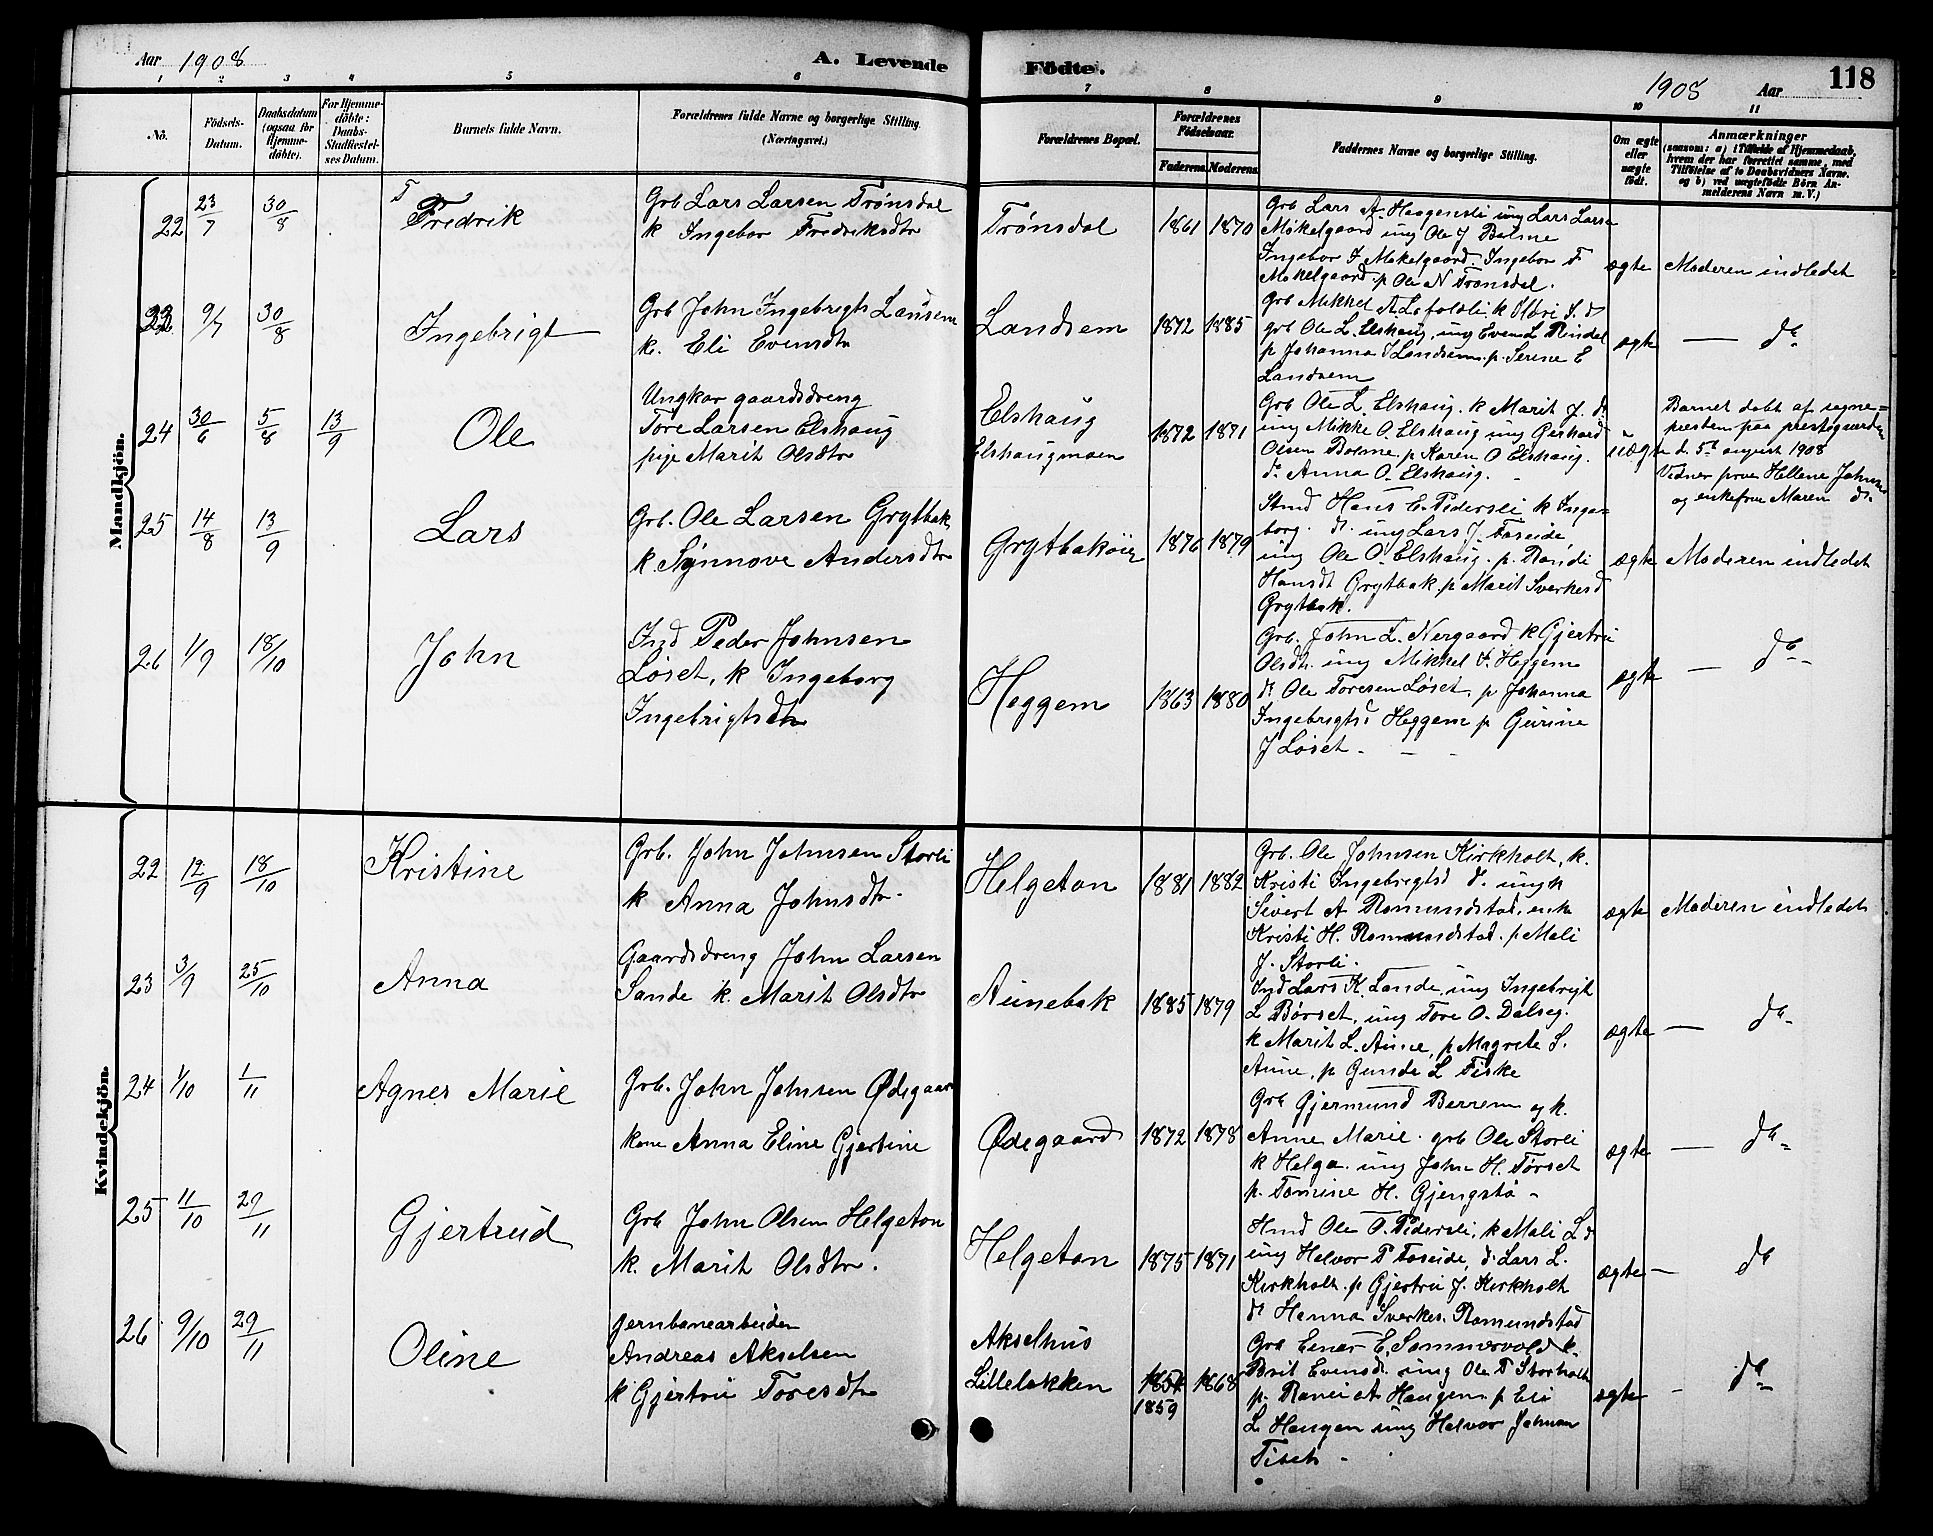 Aar 1908
A. Levende Födte.
1908 Aar 118
1 2 3 4 5 6 7 8 9 10 11
No.
Födsels-Datum.
Daabsdatum (ogsaa for Hjemme-döbte).
For Hjemme-döbte: Daabs-Stadfæstel-ses Datum.
Barnets fulde Navn.
Forældrenes fulde Navne og borgerlige Stilling. (Næringsvei.)
Forældrenes Bopæl.
Forældrenes Födselsaar.
Faderens. Moderens.
Faddernes Navne og borgerlige Stilling.
Om ægte eller uægte födt.
Anmærkninger
(saasom: a) i Tilfælde af Hjemmedaab, hvem der har forrettet samme, med Tilföielse af to Daabsvidners Navne. og b) ved uægtefödte Börn An-melderens Navn m. V.)
Mandkjön.
22 23/7 30/8 Fredrik
Grb Lars Larsen Trønsdal
k Ingebor Fredriksdtr
Trønsdal 1861 1870
Grb Lars A. Haugensli ung Lars Larse
Mikelgaard ung Ole J Bolme
Ingebor F Mikelgaard. Ingebor F
Mikelgaard p Ole N Trønsdal.
ægte Moderen indledet
23 9/7 30/8 Ingebrigt
Grb John Ingebrigts Lansem
k. Eli Evensdtr
Landsem 1872 1885
Grb Mikkel A. k S. d
grb Ole L. Elshaug, ung Even L Rindal
p Johanna J Landsem. p. Serine E
Landsem
ægte — do
24 30/6 5/8 13/9 Ole
Ungkar gaardsdreng
Tore Larsen Elshaug
pige Marit Olsdtr
Elshaug
Elshaugmoen 1872 1871
Grb Ole L. Elshaug. k Marit J. d.
ung Mikke O. Elshaug ung Gerhard
Olsen Bolme, p Karen O Elshaug.
do Anna O. Elshaug.
uægte
Barnet døbt af sogne=
presten paa prestegaarden
d. 5te august 1908
Vidner frue Hellene Johnse
og enkefrue Maren do
25 14/8 13/9 Lars
Grb. Ole Larsen Grytbak
k. Synnøve Andersdtr
Grytbakøien 1876 1879
Smd Hans E. Pedersli k Inge-
borg. d. ung Lars J. Foseide,
ung Ole O. Elshaug. p. Randi
Hansdt Grytbak. p Marit Sverkesd
Grytbak.
ægte Moderen indledet
26 1/9 18/10 John
Ind Peder Johnsen
Løset, k Ingeborg
Ingebrigtsdtr
Heggem 1863 1880
Grb. John L. Nergaard k Gjertru
Olsdt. ung Mikkel F. Heggem
do Ole Toresen Løset, p Johanna
Ingebrigtsd Heggem p Gurine
J Løset.
ægte — do
Kvindekjön.
22 12/9 18/10 Kristine
Grb. John Johnsen Storli
k Anna Johnsdtr.
Helgeton 1881 1882
Grb. Ole Johnsen Kirkholt, k.
Kristi Ingebrigtsd d. ungk
Sivert A Romundstad, enke
Kristi H. Romundstad. p Mali
J. Storli.
ægte Moderen indledet
23 3/9 25/10 Anna
Gaardsdreng John Larsen
Sande k. Marit Olsdtr
Aunebak 1885 1879
Ind Lars K. Sande, ung Ingebrigt
L Børset, ung Tore O. Dalseg.
k Marit L. Aune, p Magrete S.
Aune, p Gunda L Fiske
ægte — do
24 1/10 1/11 Agnes Marie
Grb. John Johnsen Ødegaar
kone Anna Eline Gjertine
Ødegaard 1872 1878
Grb Gjermund Berrem og k.
Anne Marie. grb Ole Storli
k Helga. ung John H. Tørset
p. Tomine H. Gjengstø
ægte — do
25 11/10 29/11 Gjertrud
Grb John Olsen Helgeton
k. Marit Olsdtr.
Helgeton 1875 1871
Hmd Ole O. Pedersli, k Mali L d
ung Halvor P Foseide, do Lars L.
Kirkholt. p Gjertru J. Kirkholt
do Hanna Sverkes. Romundstad
ægte — do
26 9/10 29/11 Oline
jernbanearbeider
Andreas Akselsen
k Gjertru Toresdtr
Akselhus
Lilleløkken 1854 1868
1859
Grb Einar E. Sommervold k.
Brit Evensd. ung Ole T Storholt
p. Ranei A Haugen p Eli
L Haugen ung Halvor Johnsen
ægte — do